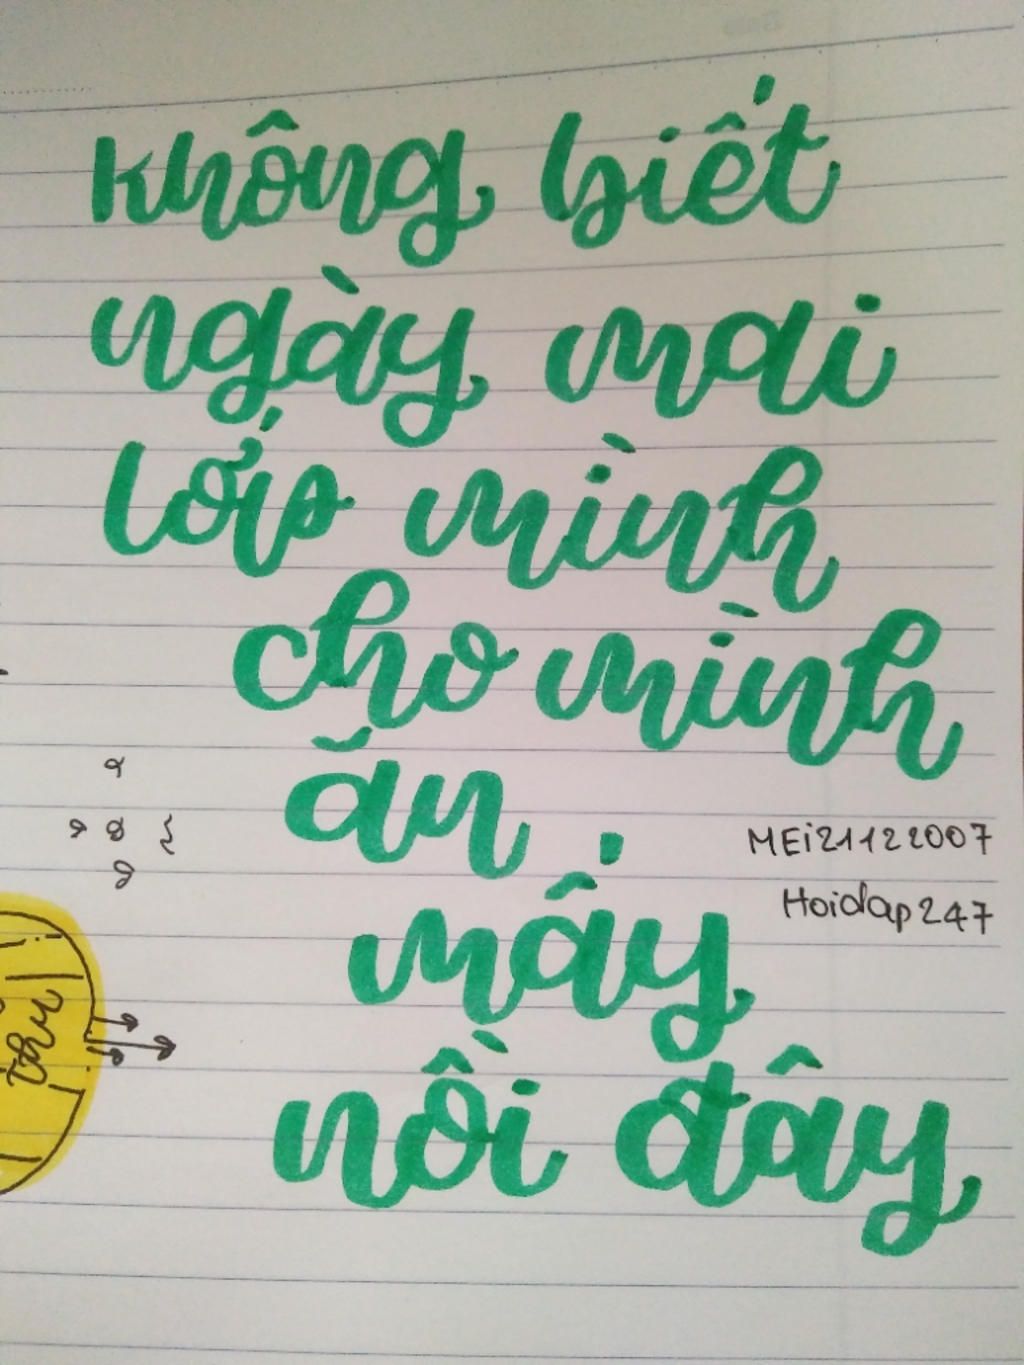 Không biết
ngày mai
lớp mình
cho mình
ăn
mấy
nồi đây
MEi21122007
Hoidap247
thu